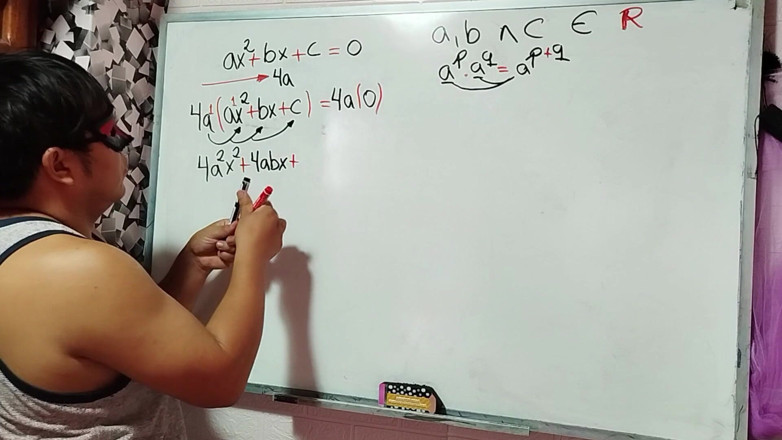 ax²+bx+c=0
4a
4a¹(a¹x²+bx+c)=4a(0)
4a²x²+4abx+
a,b ∧ c ∈ ℝ
aᵖ·a^q=a^p+q